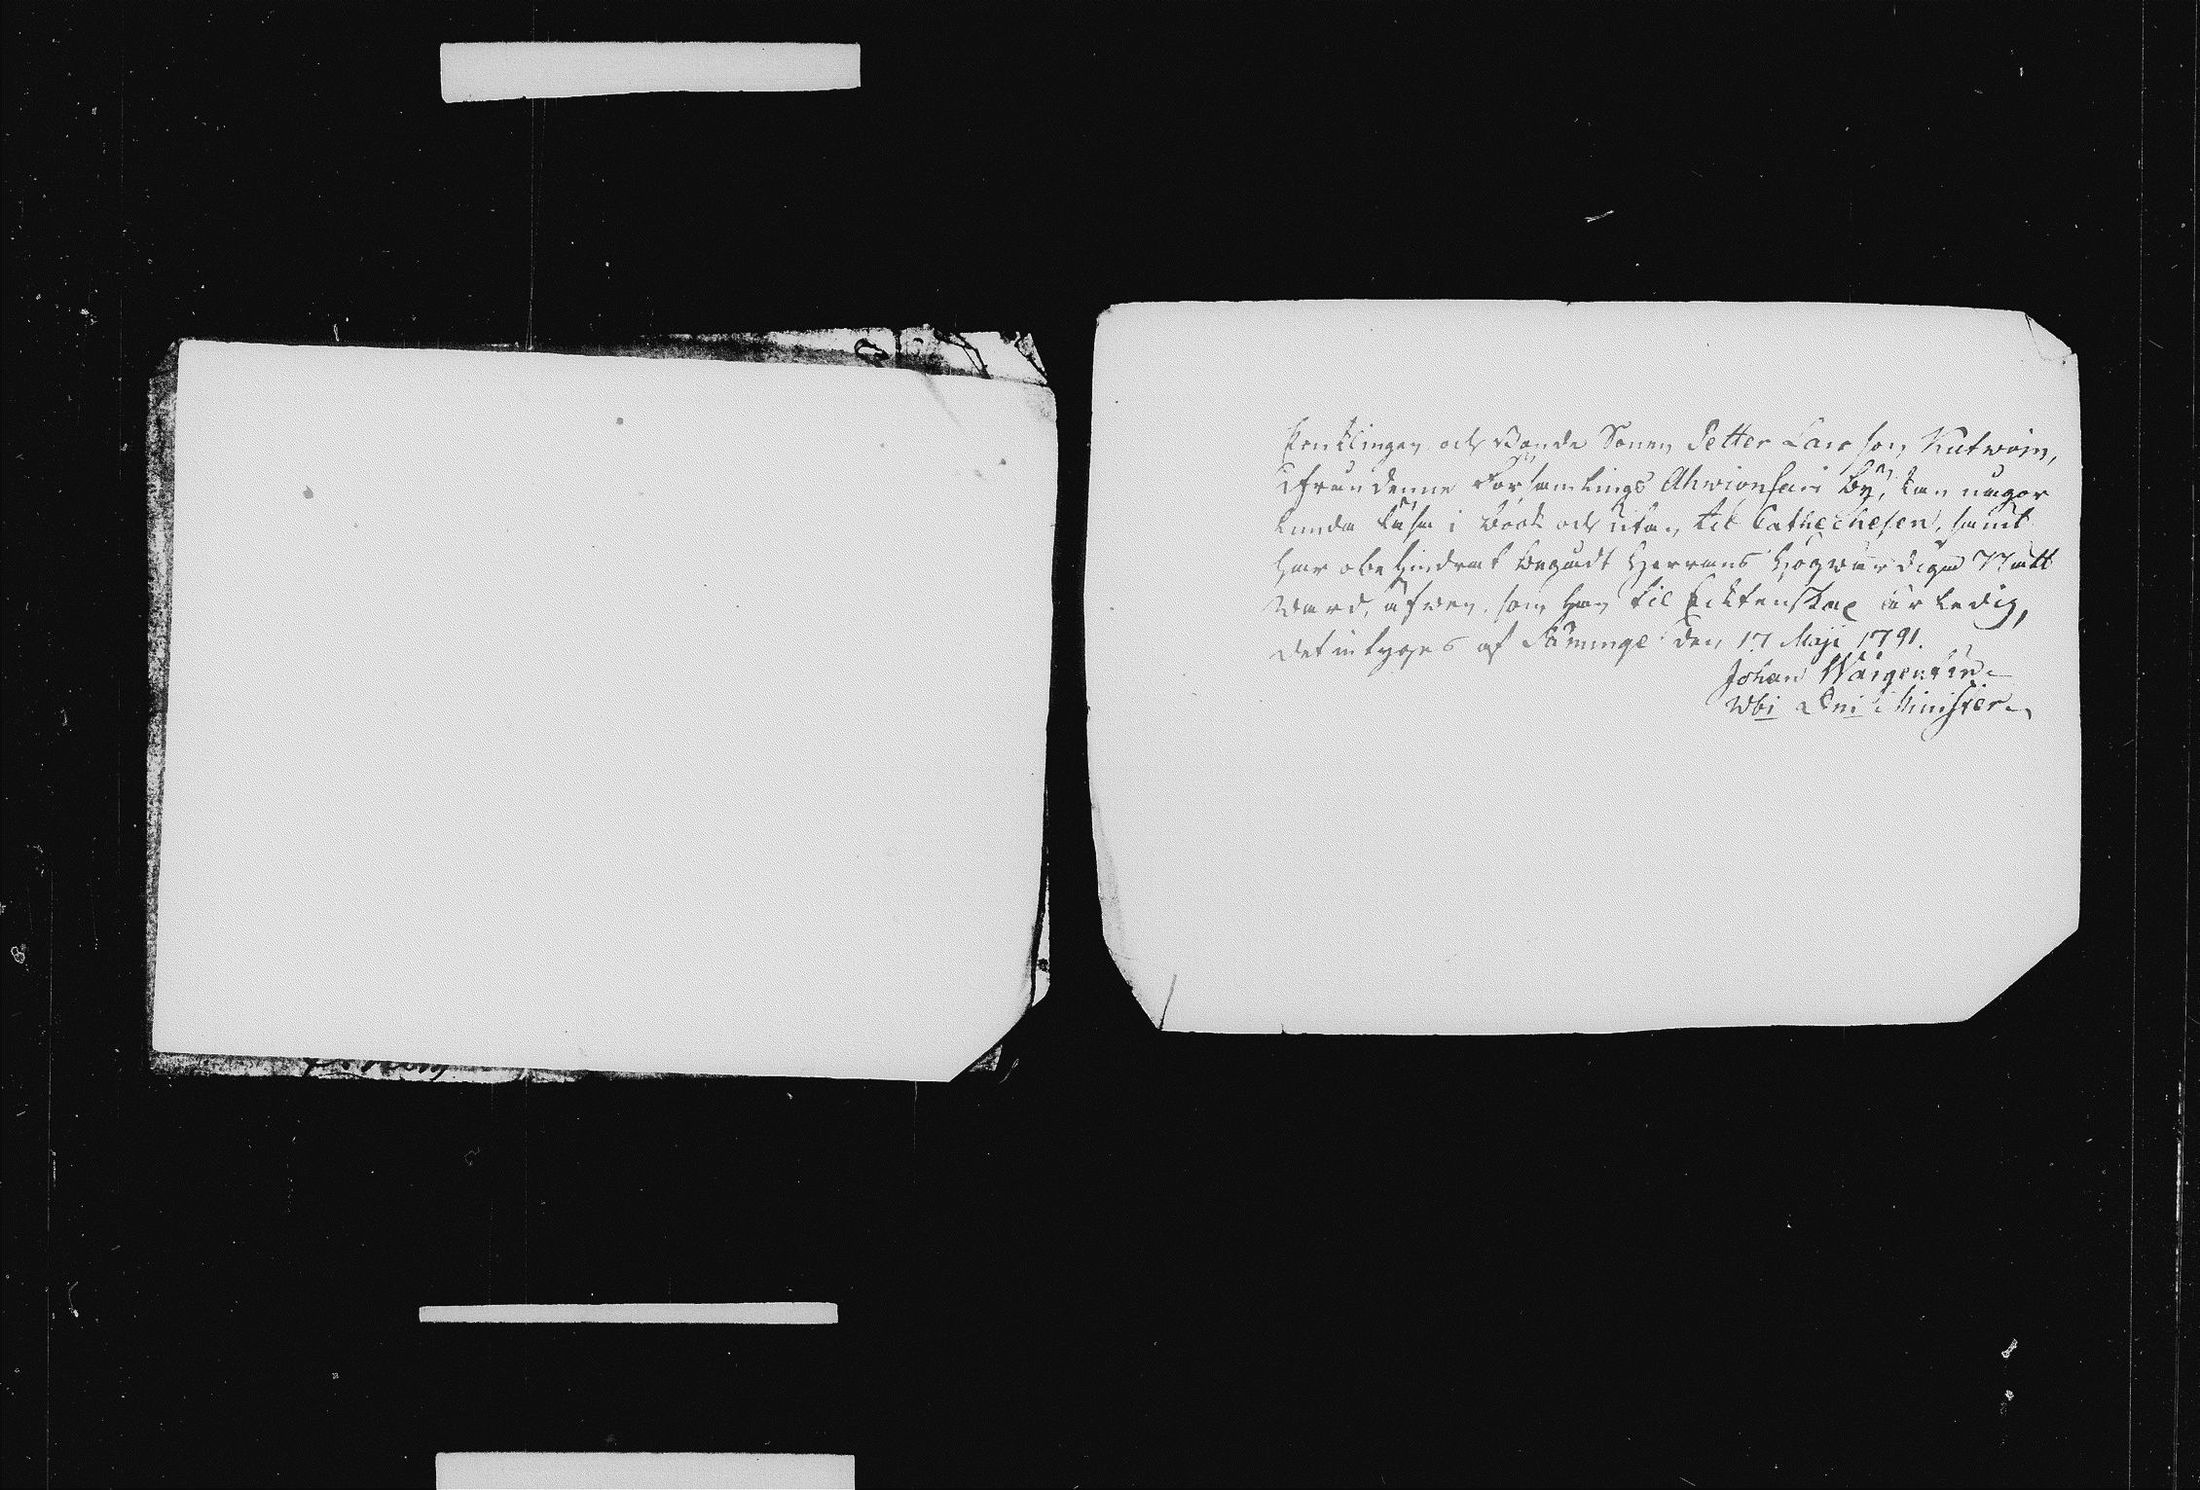 Ynklingen och Bonde Sonen Petter Larsson Kutwoin,
ifrån denne Församlings Ahwionsari By, kan någor
lunda läsa i Book och utan til Cathechesen, samt
har obehindrat begådt Herrans Högwärdiga Natt
ward, äfwen som han til Ecktenskap är ledig,
Det intyges af Säminge den 17 Maji 1791.
Johan Wargentin
Wbi Dni Minister